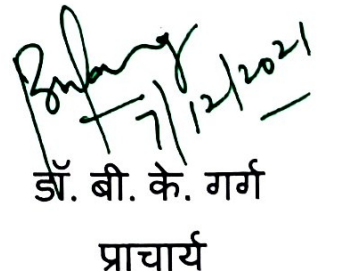 7/12/2021
डॉ. बी. के. गर्ग
प्राचार्य